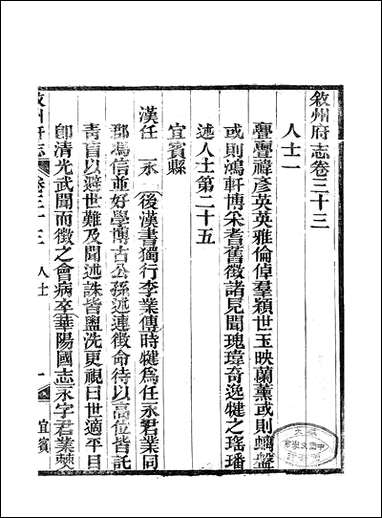 敘州府志卷三十三
人士一
亹亹禕彥英英雅倫倬羣穎世玉映蘭薰或則螭盤
或則鴻軒博采耆舊徵諸見聞瑰瑋奇逸犍之瑤璠
述人士第二十五
宜賓縣
漢任永(後漢書獨行李業傳時犍為任永君業同
郡馮信並好學博古公孫述連徵命待以高位皆託
青盲以避世難及聞述誅皆盥洗更視曰世適平目
卽清光武聞而徵之會病卒(華陽國志永字君業僰
敘州府志
卷三十三
人士
一
宜賓